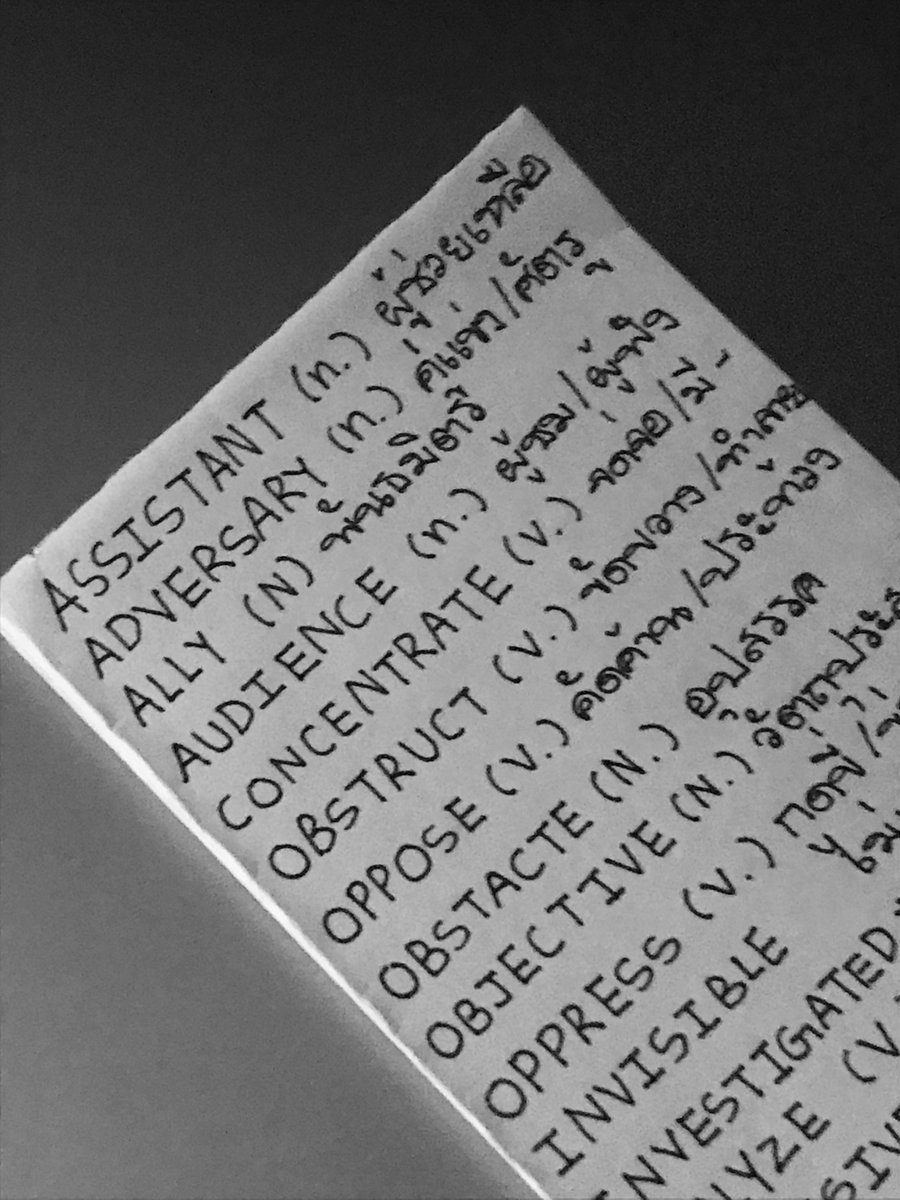 ASSISTANT (n.) ผู้ช่วยเหลือ
ADVERSARY (n.) คู่แข่ง/ศัตรู
ALLY (N) พันธมิตร
AUDIENCE (n.) ผู้ชม/ผู้ฟัง
CONCENTRATE (v.) จดจ่อ/มี
OBSTRUCT (V.) ขัดขวาง/ทำลาย
OPPOSE (V.) คัดค้าน/ประท้วง
OBSTACTE (N.) อุปสรรค
OBJECTIVE (N.) วัตถุประส
OPPRESS (V.) กดขี่/
INVISIBLE
INVESTIGATED
YZE (V.
SIVE